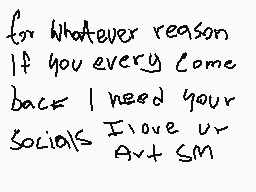 for whatever reason
If you every come
back I need your
socials I love ur
Art SM